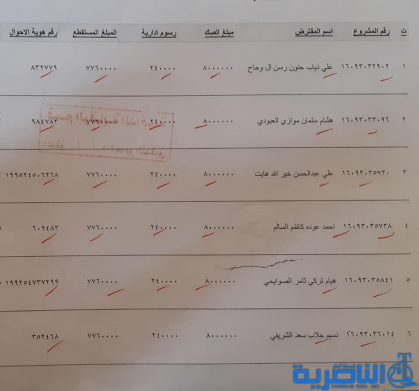 ت رقم المشروع اسم المقترض مبلغ الصك رسوم ادارية المبلغ المستقطع رقم هوية الاحوال
١ ١٦٠٩٣٠٣٢٩٠٢ علي ذياب حنون رسن ال وحاج ٨٠٠٠٠٠٠ ٢٤٠٠٠٠ ٧٧٦٠٠٠٠ ٨٣٢٧٧٩
٢ ١٦٠٩٣٠٣٣٠٩٦ هشام سلمان موازي العبودي ٨٠٠٠٠٠٠ ٢٤٠٠٠٠ ٧٧٦٠٠٠٠ ٩٨٤٧٨٣
٣ ١٦٠٩٣٠٣٥٧٣٠ علي عبدالحسن خير الله هايت ٨٠٠٠٠٠٠ ٢٤٠٠٠٠ ٧٧٦٠٠٠٠ ١٩٩٥٢٤٥٠٦٢٦٨
٤ ١٦٠٩٣٠٣٥٧٣٨ احمد عوده كاظم السالم ٨٠٠٠٠٠٠ ٢٤٠٠٠٠ ٧٧٦٠٠٠٠ ٦٠٩٤٨٣
٥ ١٦٠٩٣٠٣٥٨٤١ هيام تركي ثامر الصوايحي ٨٠٠٠٠٠٠ ٢٤٠٠٠٠ ٧٧٦٠٠٠٠ ١٩٩٢٥٤٧٣٧٢٩٩
٦ ١٦٠٩٣٠٣٦٠١٤ نسيم حلاب سعد الشريفي ٨٠٠٠٠٠٠ ٢٤٠٠٠٠ ٧٧٦٠٠٠٠ ٣٥٢٤٦٨
الناصرية